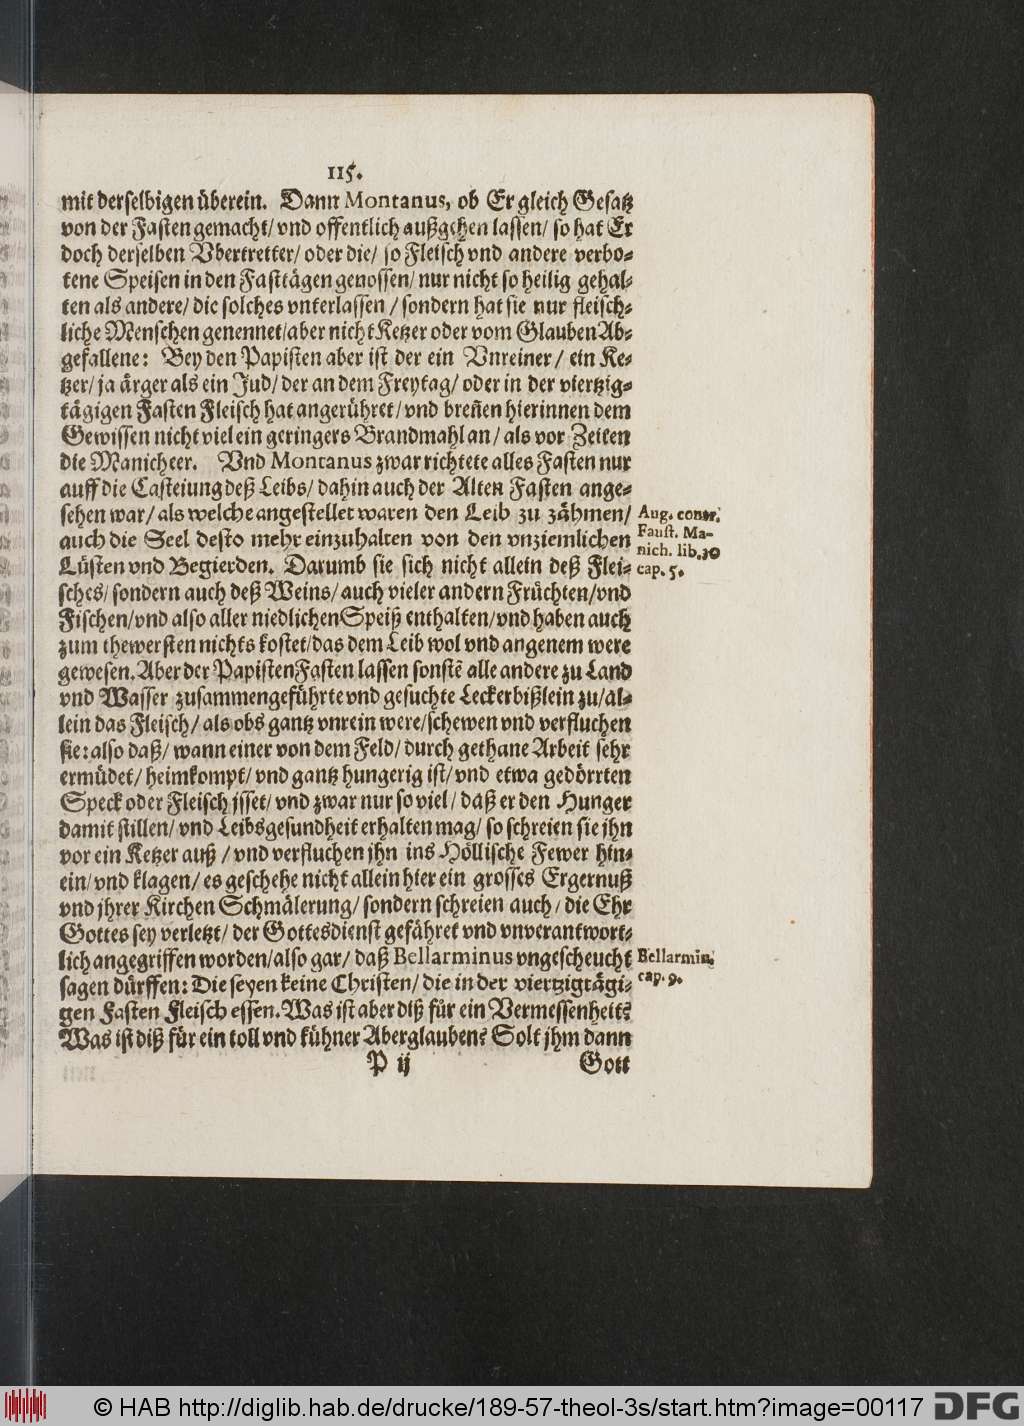 115.
mit derselbigen überein. Dann Montanus, ob Er gleich Gesatz
von der Fasten gemacht/ vnd offentlich außgehen lassen/ so hat Er
doch derselben Vbertretter/ oder die/ so Fleisch vnd andere verbo-
tene Speisen in den Fasttägen genossen/ nur nicht so heilig gehal-
ten als andere/ die solches vnterlassen / sondern hat sie nur fleisch-
liche Menschen genennet/ aber nicht Ketzer oder vom Glauben Ab-
gefallene: Bey den Papisten aber ist der ein Vnreiner / ein Ke-
tzer/ ja ärger als ein Jud/ der an dem Freytag/ oder in der viertzig-
tägigen Fasten Fleisch hat angerühret/ vnd breñen hierinnen dem
Gewissen nicht viel ein geringers Brandmahl an/ als vor Zeiten
die Manicheer. Vnd Montanus zwar richtete alles Fasten nur
auff die Casteiung deß Leibs/ dahin auch der Alten Fasten ange-
sehen war/ als welche angestellet waren den Leib zu zähmen/
auch die Seel desto mehr einzuhalten von den vnziemlichen
Lüsten vnd Begierden. Darumb sie sich nicht allein deß Flei-
sches/ sondern auch deß Weins/ auch vieler andern Früchten/ vnd
Fischen/ vnd also aller niedlichen Speiß enthalten/ vnd haben auch
zum thewersten nichts kostet/ das dem Leib wol vnd angenem were
gewesen. Aber der Papisten Fasten lassen sonstẽ alle andere zu Land
vnd Wasser zusammengeführte vnd gesuchte Leckerbißlein zu/ al-
lein das Fleisch/ als obs gantz vnrein were/ schewen vnd verfluchen
sie: also daß/ wann einer von dem Feld/ durch gethane Arbeit sehr
ermüdet/ heimkompt/ vnd gantz hungerig ist/ vnd etwa gedörrten
Speck oder Fleisch jsset/ vnd zwar nur so viel/ daß er den Hunger
damit stillen/ vnd Leibsgesundheit erhalten mag/ so schreien sie jhn
vor ein Ketzer auß / vnd verfluchen jhn ins Höllische Fewer hin-
ein/ vnd klagen/ es geschehe nicht allein hier ein grosses Ergernuß
vnd jhrer Kirchen Schmälerung/ sondern schreien auch/ die Ehr
Gottes sey verletzt/ der Gottesdienst gefähret vnd vnverantwort-
lich angegriffen worden/ also gar/ daß Bellarminus vngescheucht
sagen dürffen: Die seyen keine Christen/ die in der viertzigtägi-
gen Fasten Fleisch essen. Was ist aber diß für ein Vermessenheit?
Was ist diß für ein toll vnd kühner Aberglauben? Solt jhm dann
P ij
Gott
Aug. contr.
Faust. Ma-
nich. lib. 30
cap. 5.
Bellarmin.
cap. 9.
© HAB http://diglib.hab.de/drucke/189-57-theol-3s/start.htm?image=00117
DFG